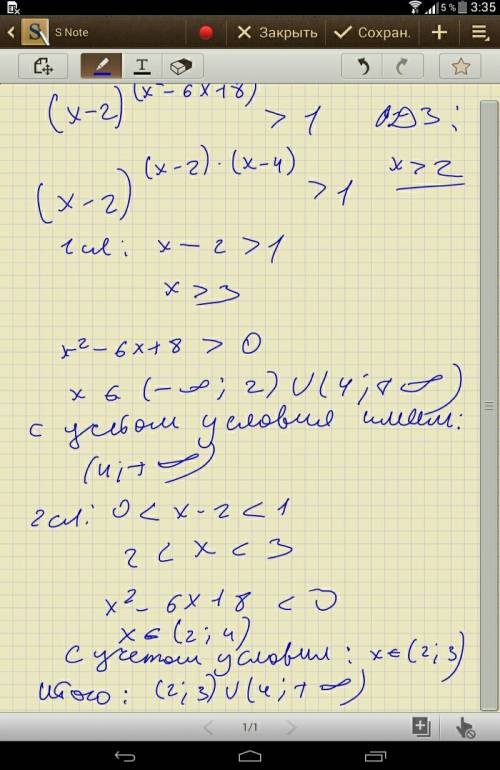 5 % 3:35
S Note Закрыть Сохран.
(x-2)^(x²-6x+8) > 1 ОДЗ:
(x-2)^(x-2)·(x-4) > 1 x>2
1сл: x-2>1
x>3
x²-6x+8 > 0
x ∈ (-∞; 2) ∪ (4; +∞)
с учетом условия имеем:
(4; +∞)
2сл: 0 < x-2 < 1
2 < x < 3
x²-6x+8 < 0
x ∈ (2; 4)
с учетом условия: x ∈ (2; 3)
итого: (2; 3) ∪ (4; +∞)
1/1